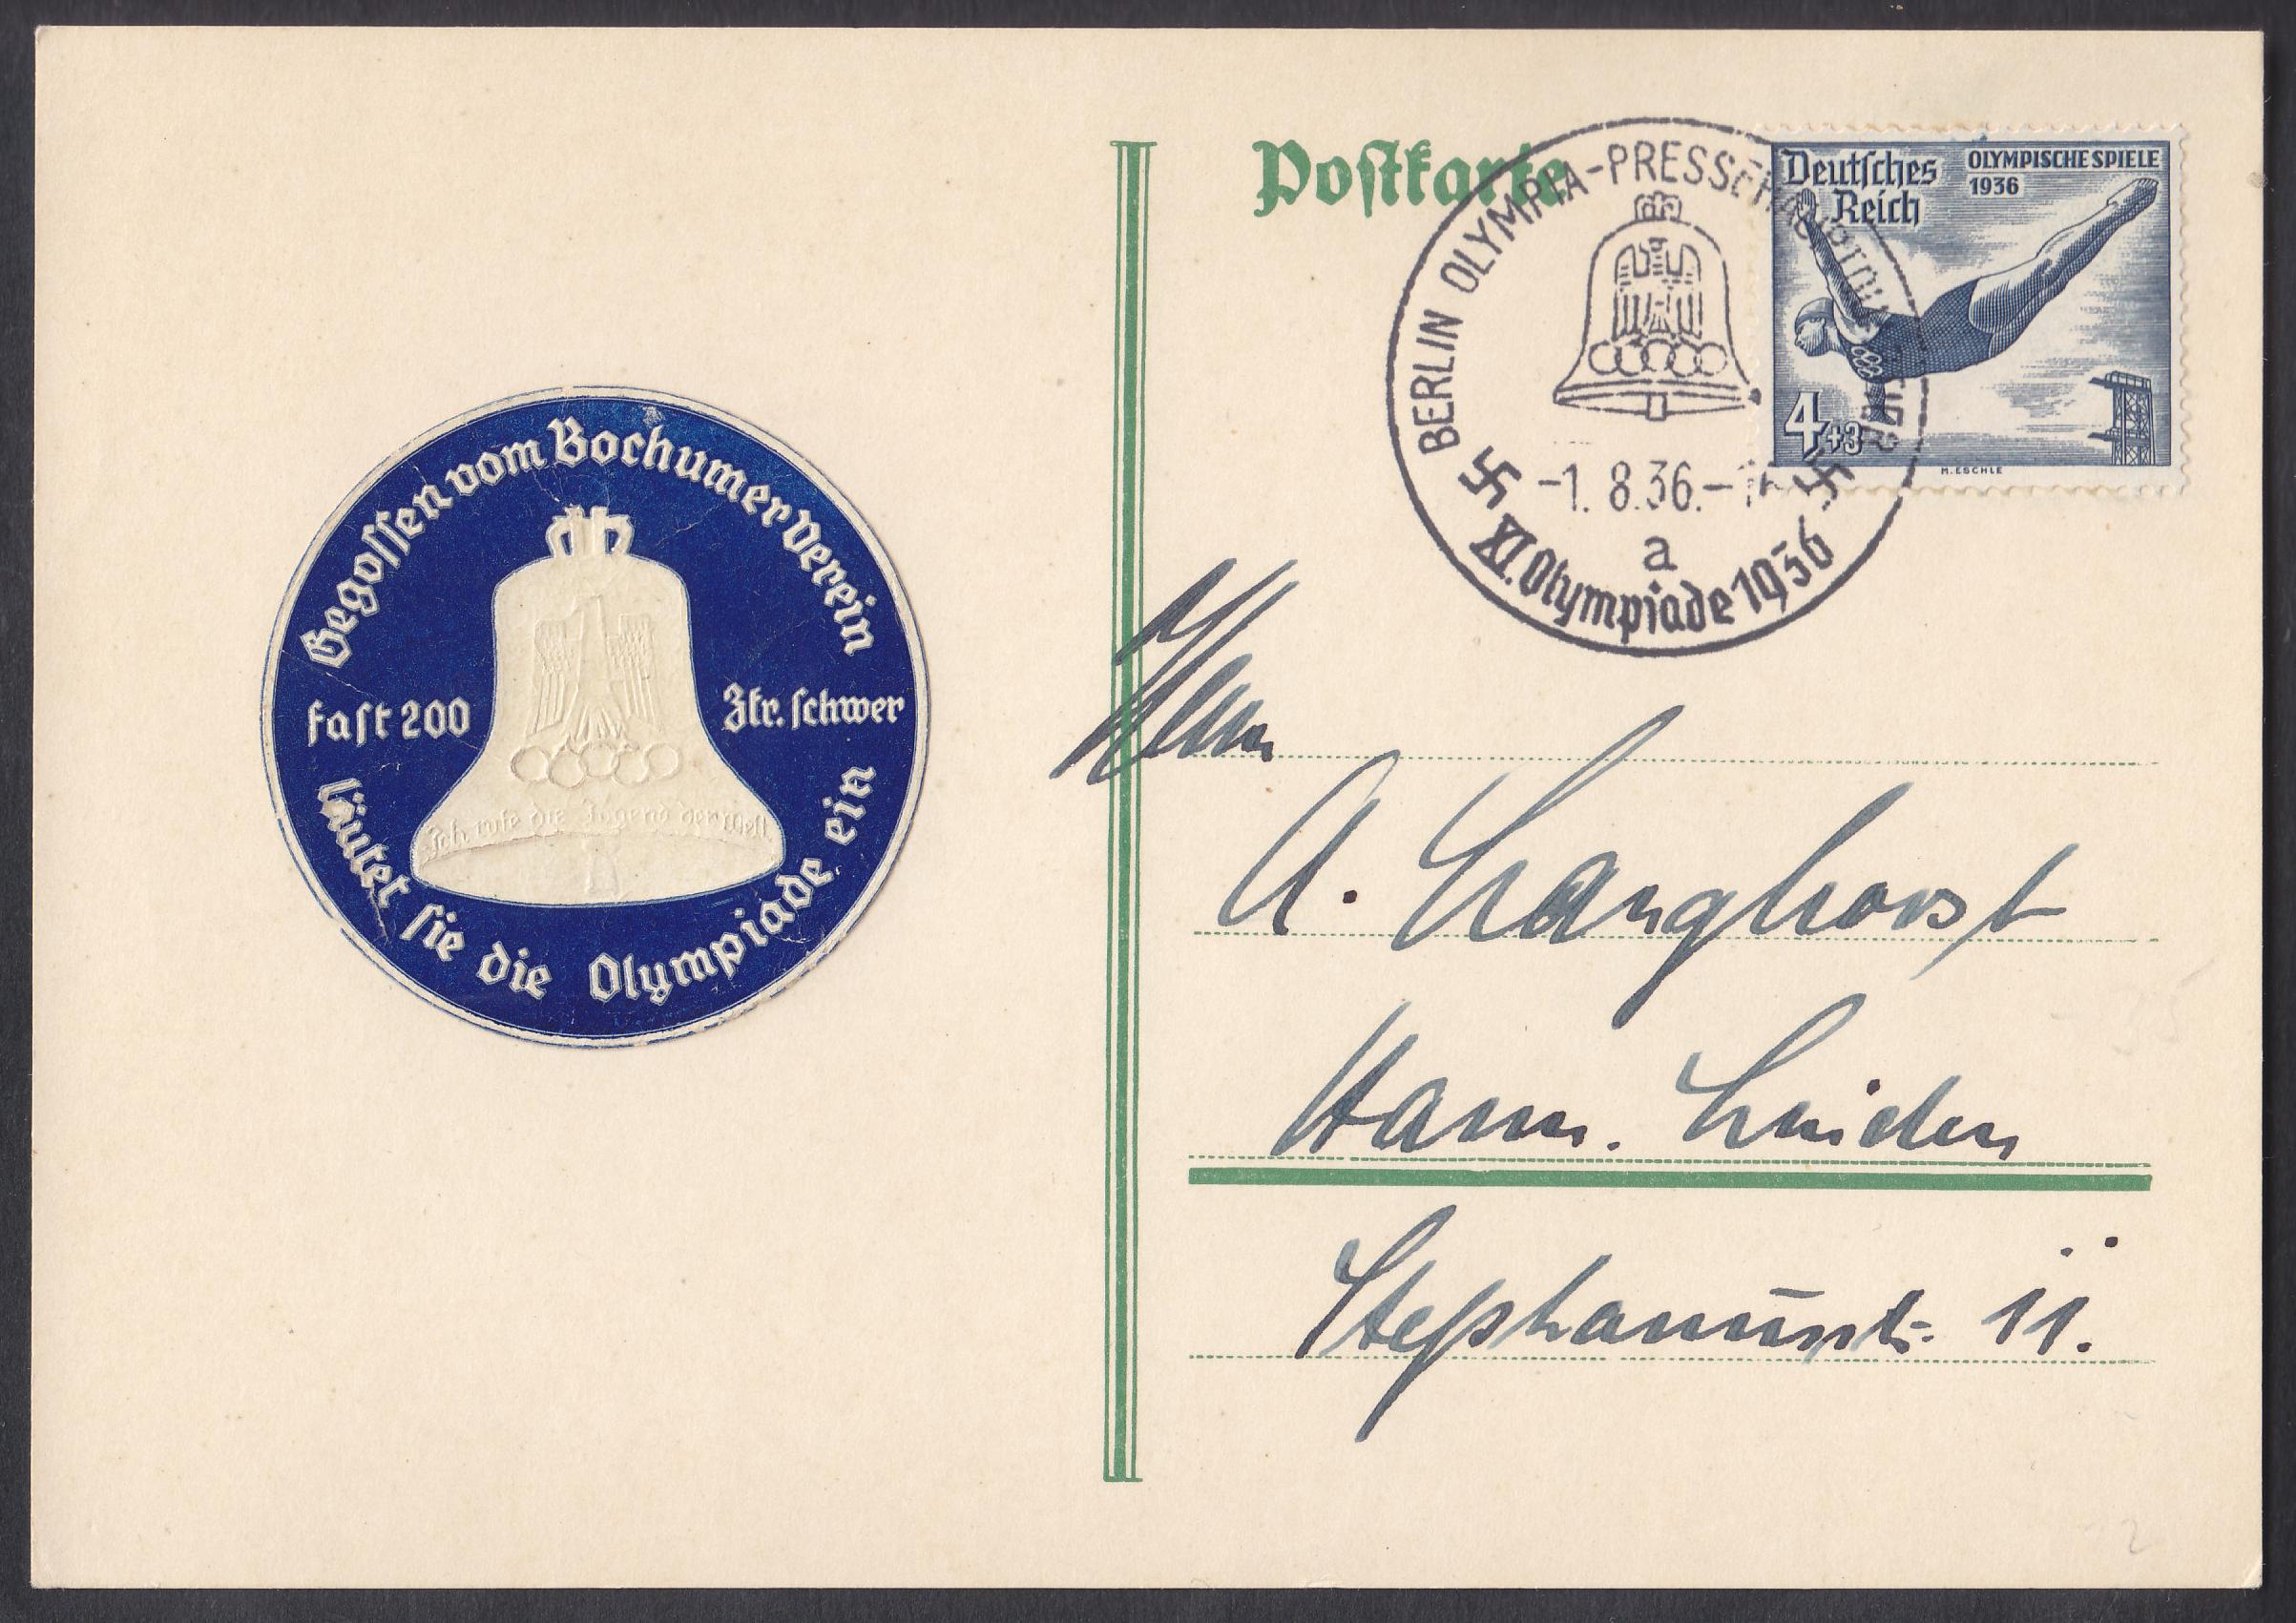 Gegossen vom Bochumer Verein
fast 200 Ztr. schwer
läutet sie die Olympiade ein
Ich rufe die Jugend der Welt
Postkarte
BERLIN OLYMPIA-PRESSEHAUPTQUARTIER
-1. 8.36.-
a
XI. Olympiade 1936
Deutsches
Reich
OLYMPISCHE SPIELE
1936
4+3
M. ESCHLE
Herrn
A. Langhorst
Hann. Linden
Stephanusstr. 11.